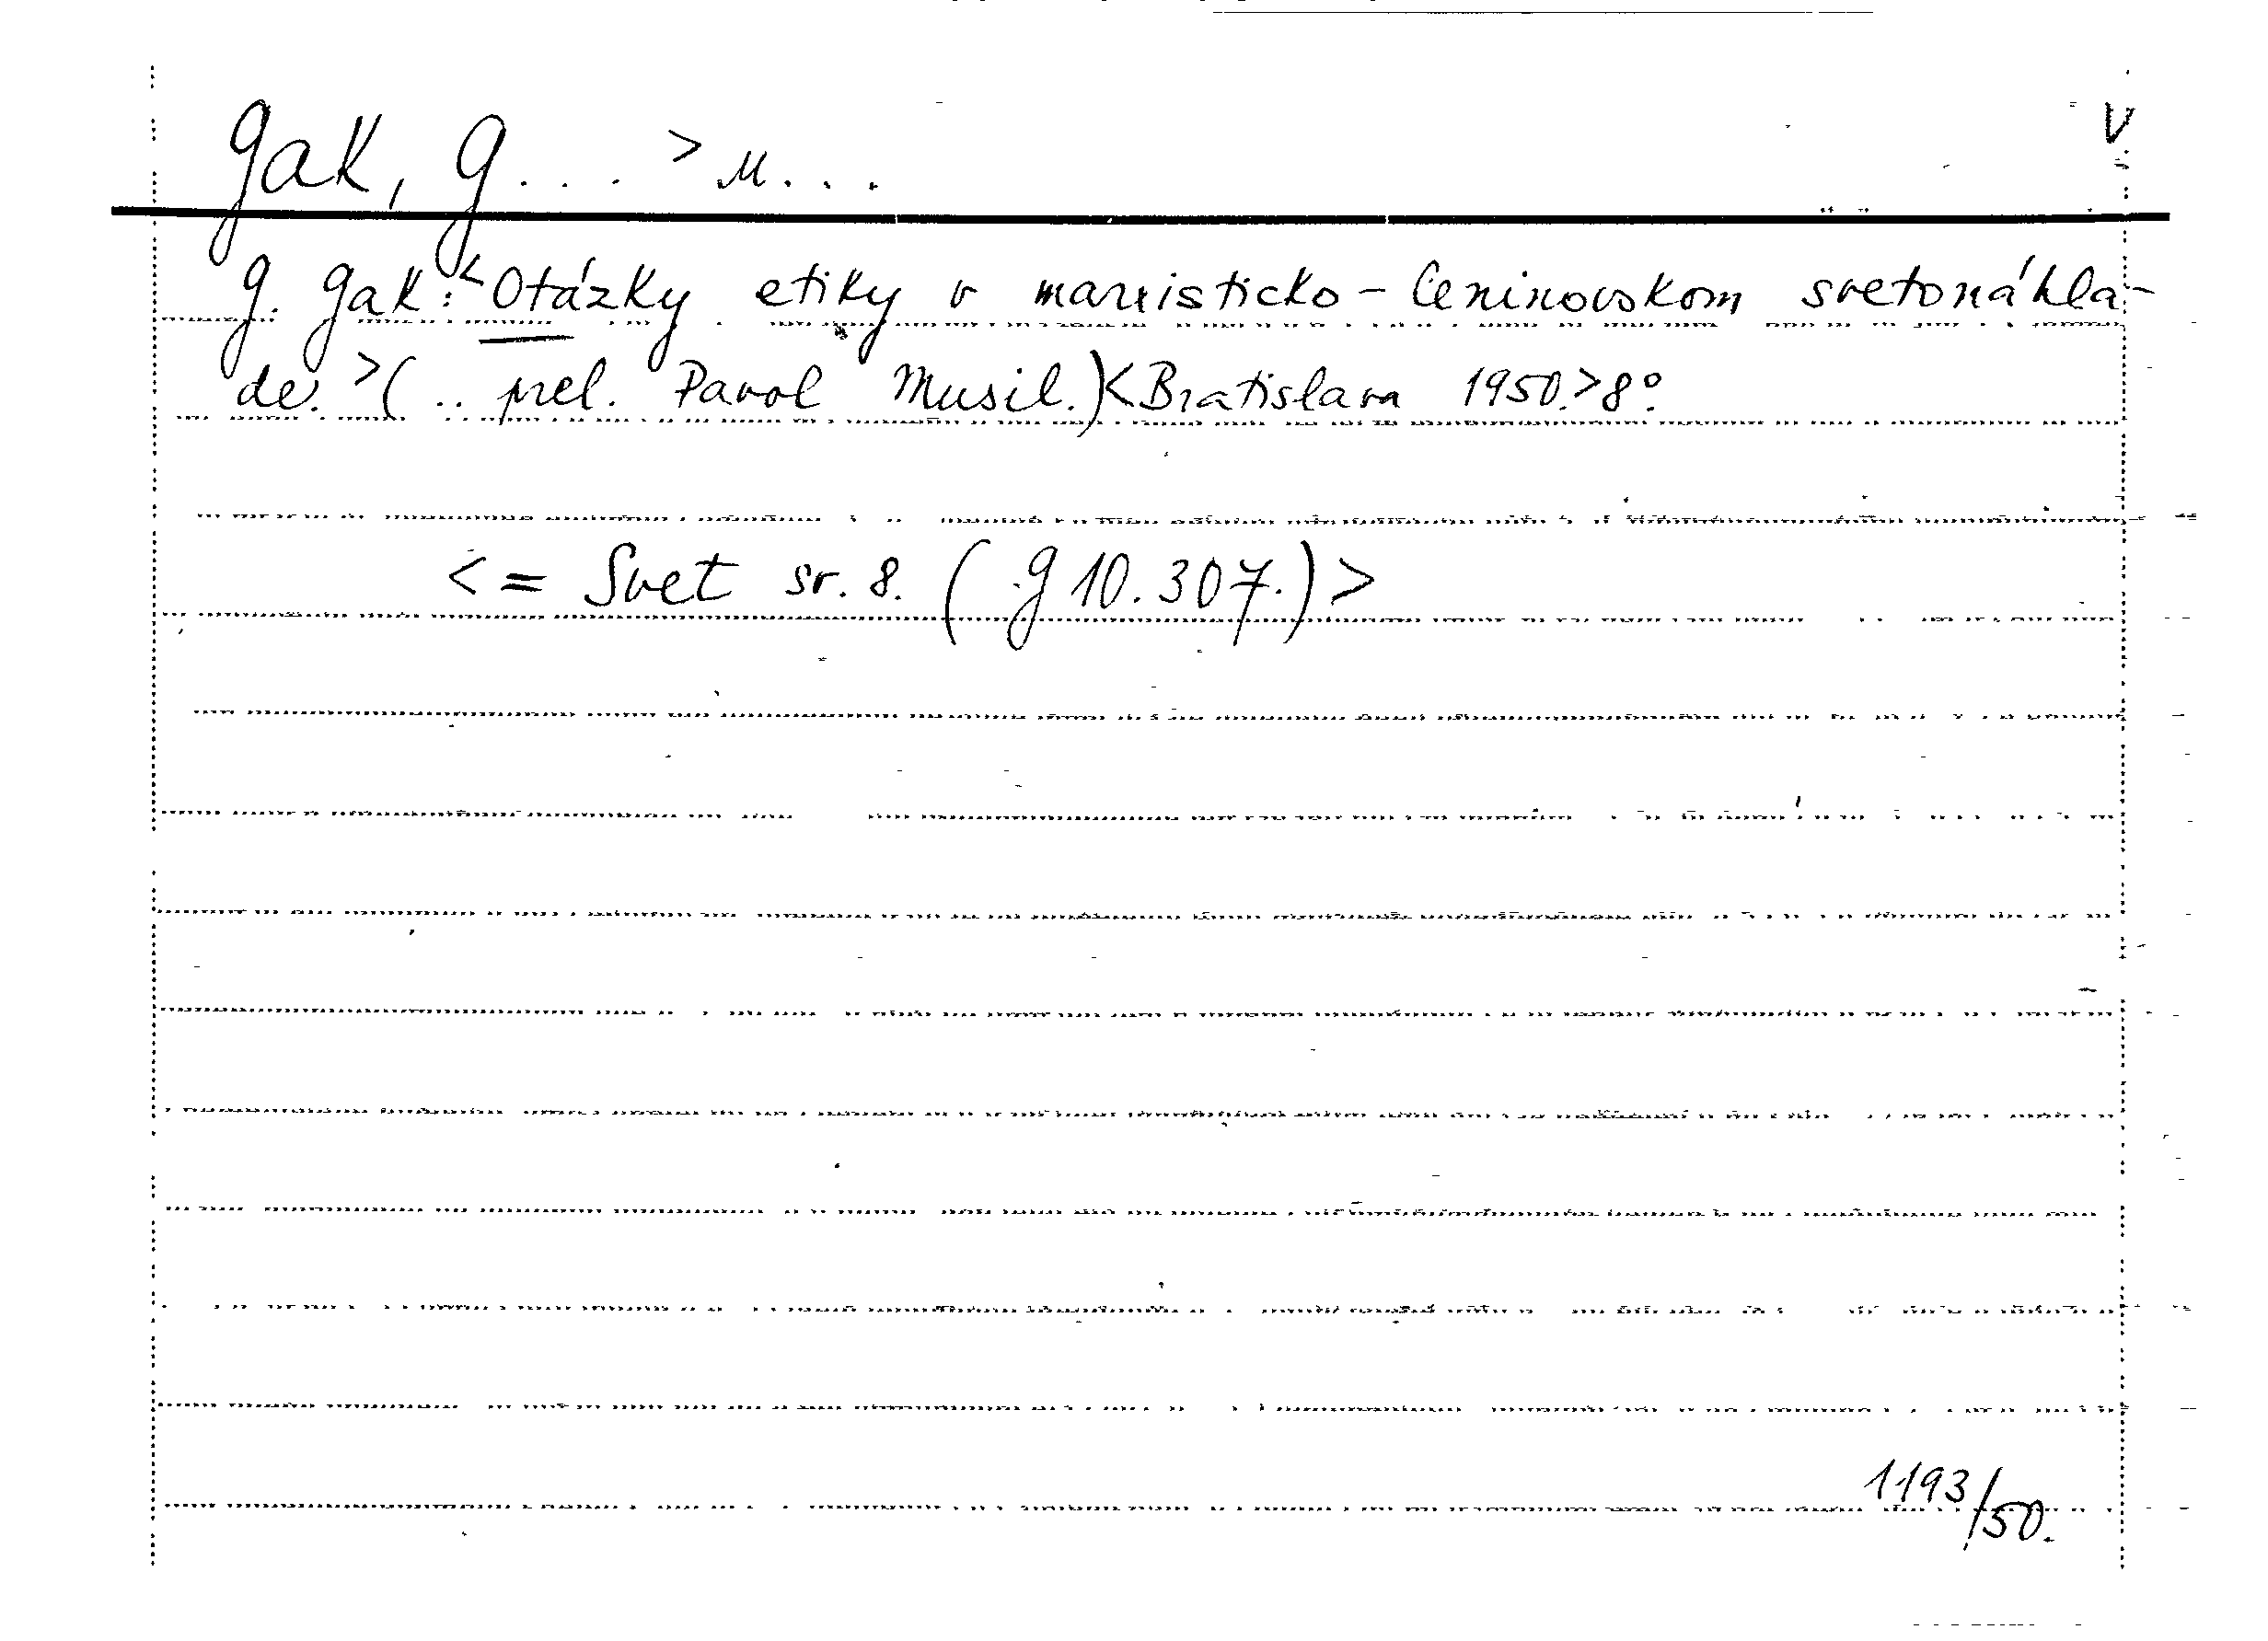 Gak, G... > M...
V
G. Gak: <Otázky etiky v marxisticko-leninovskom svetonáhla-
de. >(.. prel. Pavol Musil.)< Bratislava 1950.> 8°.
< = Svet sv. 8. (G 10.307.) >
1193/50.